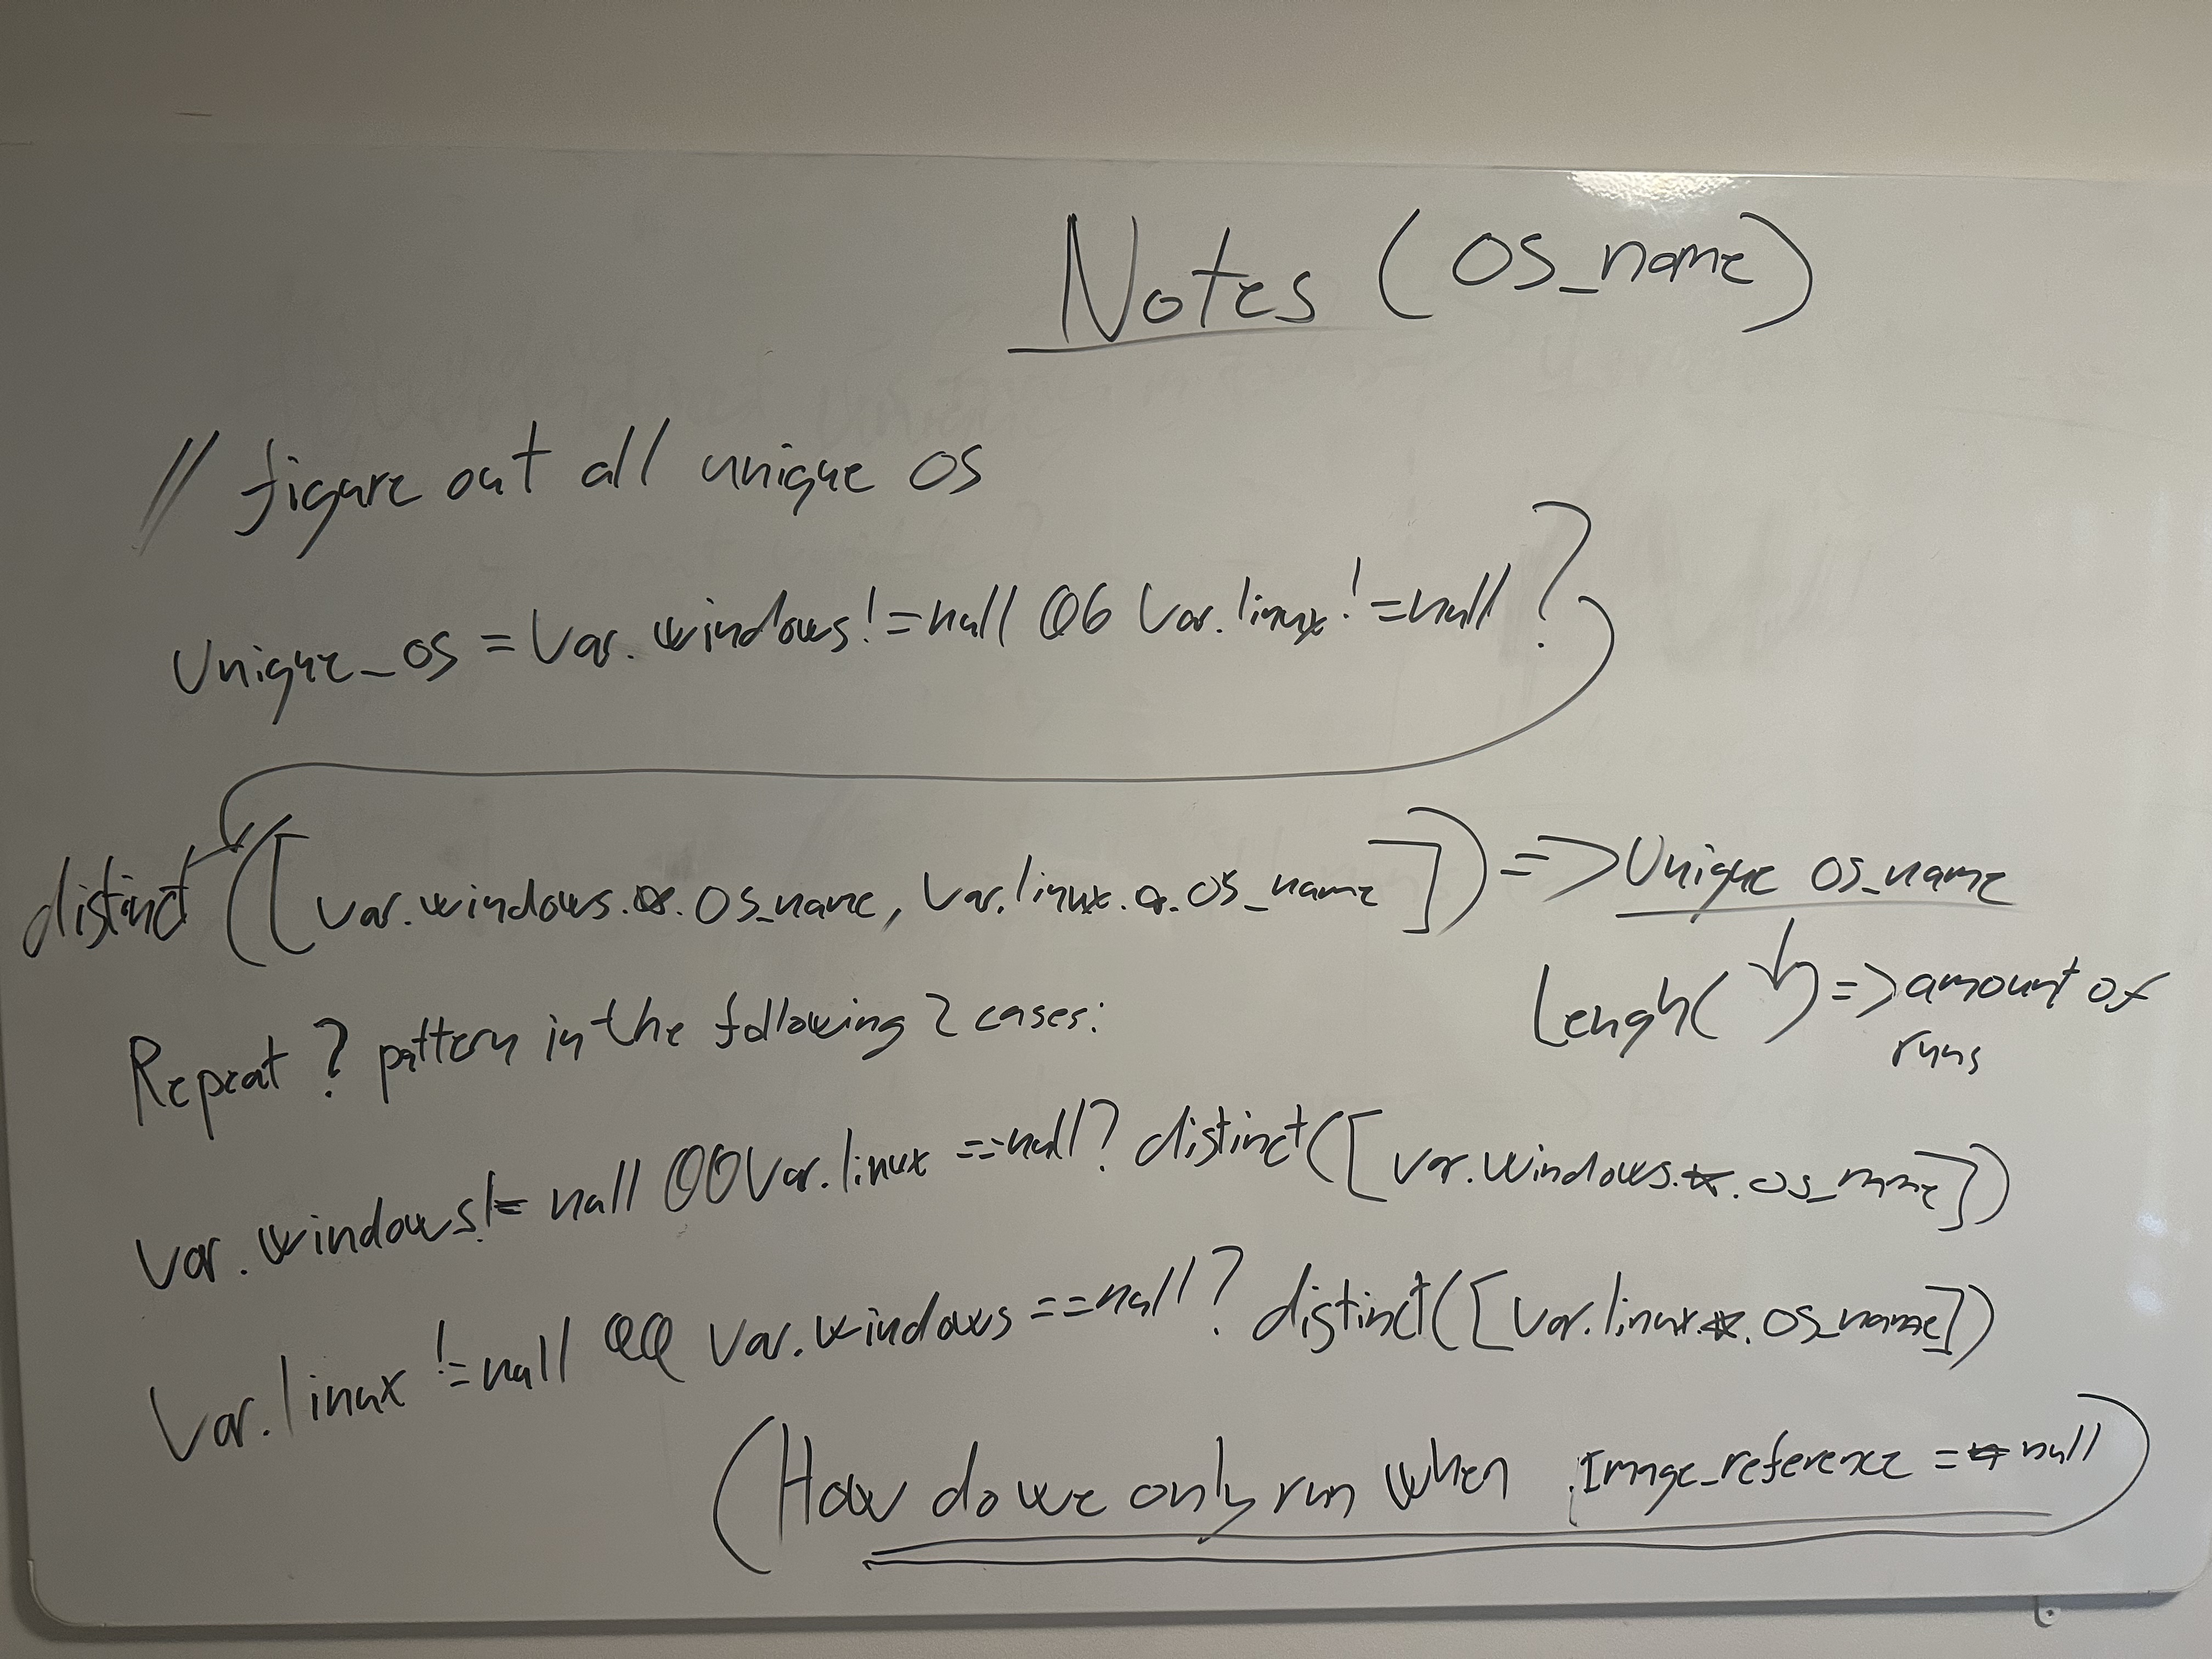 Notes (OS_name)
// figure out all unique OS
Unique_os = Var.windows != null && Var.linux != null ?
distinct([var.windows.*.OS_name, Var.linux.*.OS_name]) => Unique OS_name
Lengh( ) => amount of
runs
Repeat ? pattern in the following 2 cases:
Var.windows != null && Var.linux == null ? distinct([Var.windows.*.os_name])
Var.linux != null && Var.windows == null ? distinct([Var.linux.*.OS_name])
(How do we only run when Image_reference == null)